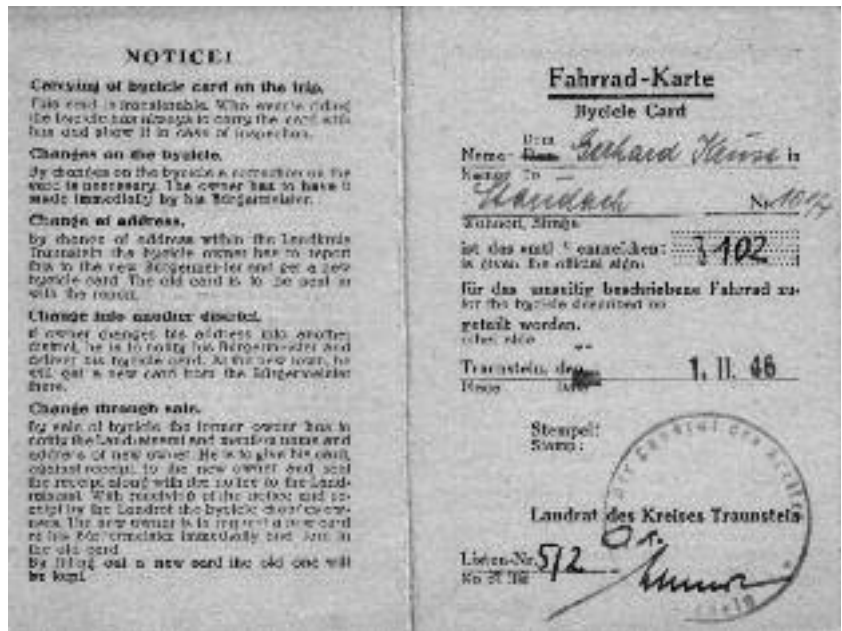 NOTICE!
Carrying of bycicle card on the trip.
This card is transferable. Who ever is riding
the bycicle has always to carry the card with
him and show it in case of inspection.
Changes on the bycicle.
By changes on the bycicle a correction on the
card is necessary. The owner has to have it
made immedially by his Bürgermeister.
Change of address.
by change of address within the Landkreis
Traunstein the bycicle owner has to report
this to the new Bürgermeister and get a new
bycicle card. The old card is to be sent in
with the report.
Change into another district.
if owner changes his address into another
district, he is to notify his Bürgermeister and
deliver his bycicle card. At the new town, he
will get a new card from the Bürgermeister
there.
Change through sale.
By sale of bycicle the former owner has to
notify the Landratsamt and mention name and
address of new owner. He is to give his card,
against receipt to the new owner and send
the receipt along with the notice to the Land-
ratsamt. With receiving of the notice and re-
ceipt by the Landrat the bycicle
The new owner is to request a new card
at his Bürgermeister immedially and turn in
the old card
By filling out a new card the old one will
be kept
Fahrrad-Karte
Bycicle Card
Name Gerhard in
Name To
Staudach Nr.
Wohnort, Straße
ist das amtl. Kennzeichen: 102
is given the official sign:
für das umseitig beschriebene Fahrrad zu-
for the bycicle described on
geteilt worden.
other side
Traunstein, den 1. II. 46
Place
Stempel:
Stamp:
Landrat des Kreises Traunstein
Listen-Nr. 512